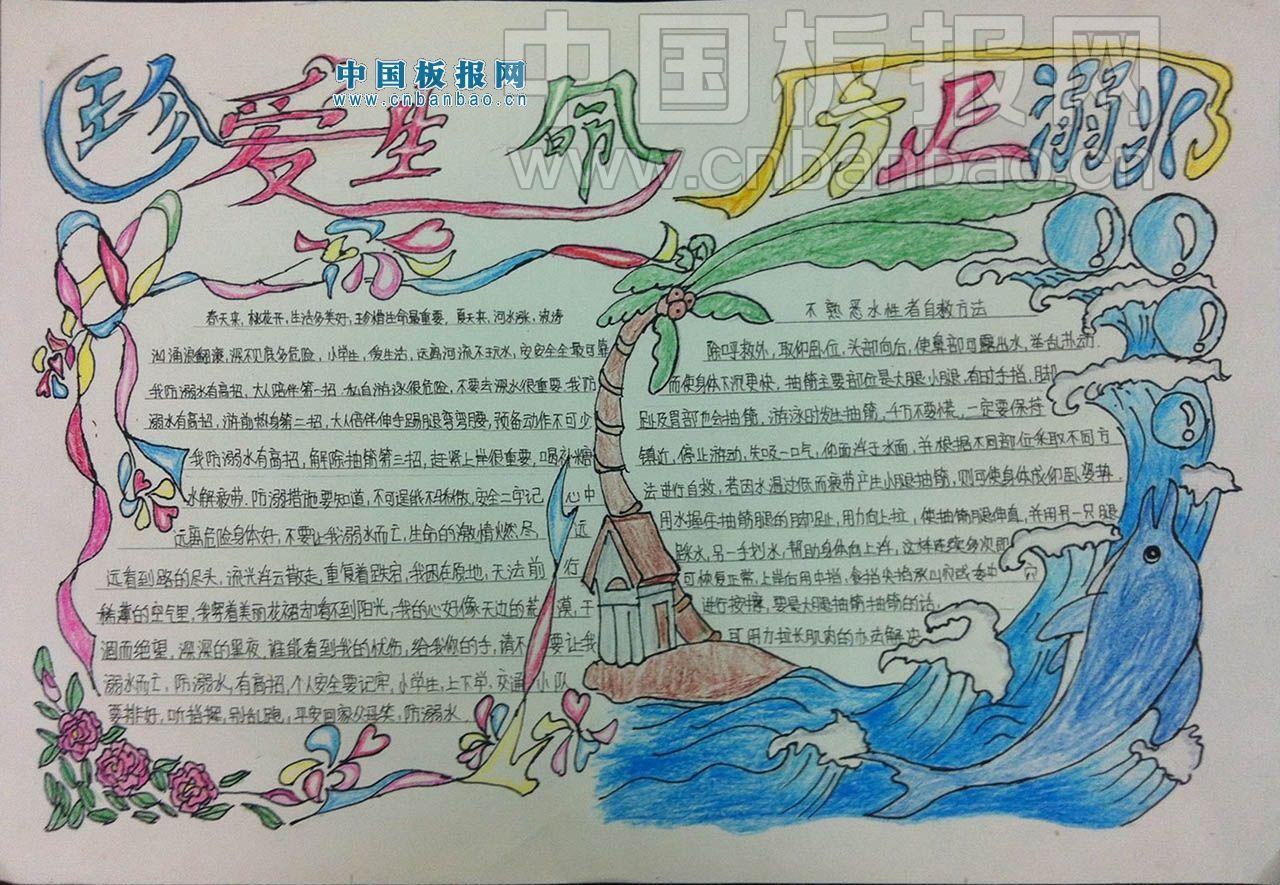 珍爱生命 防止溺水
中国板报网
www.cnbanbao.cn
中国板报网
www.cnbanbao.cn
春天来,桃花开,生活多美好,珍惜生命最重要,夏天来,河水涨,波涛
汹涌浪翻滚,深不见底多危险,小学生,爱生活,远离河流不玩水,安安全全最可靠
我防溺水有高招,大人陪伴第一招,私自游泳很危险,不要去深水很重要,我防
溺水有高招,游前热身第二招,大人陪伴伸手踢腿弯弯腰,预备动作不可少
我防溺水有高招,解除抽筋第三招,赶紧上岸很重要,喝补糖
水解疲劳.防溺措施要知道,不可逞能不稍微,安全二牢记心中
远离危险身体好,不要让我溺水而亡,生命的激情燃尽 远
远看到路的尽头,流光浮云散走,重复着跌宕,我困在原地,无法前行
稀薄的空气里,我穿着美丽花裙却看不到阳光,我的心好像天边的荒漠,干
涸而绝望,深深的黑夜,谁能看到我的忧伤,给我你的手,请不要让我
溺水而亡,防溺水,有高招,个人安全要记牢,小学生,上下学,交通小队
要排好,听指挥,别乱跑,平安回家父母笑,防溺水.
不熟悉水性者自救方法
除呼救外,取仰卧位,头部向后,使鼻部可露出水,举乱扑动
而使身体下沉更快,抽筋主要部位是大腿小腿,有时手指,脚
趾及胃部也会抽筋,游泳时发生抽筋,千万不要慌,一定要保持
镇近,停止游动,先吸一口气,仰面浮于水面,并根据不同部位采取不同方
法进行自救,若因水温过低而疲劳产生小腿抽筋,则可使身体成仰卧姿势
用水握住抽筋腿的脚趾,用力向上拉,使抽筋腿伸直,并用另一只腿
踩水,另一手划水,帮助身体向上浮,这样连续多次即
可恢复正常,上岸后用中指、食指尖掐承山穴或委中穴
进行按摩,要是大腿抽筋抽筋的话,
可用力拉长肌肉的办法解决